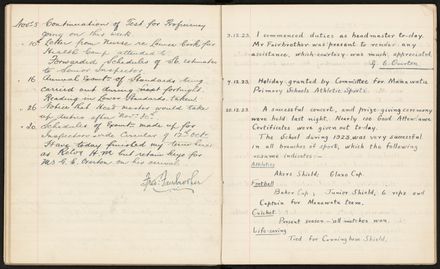 Nov. 5 Continuation of Test for Proficiency
going on this week
" 10 Letter from Nurse re Cook for
Health Camp attended to
Forwarded Schedules of Sc. estimates
to Senior Inspector.
" 16 Annual Exam. of Standards being
carried out during next fortnight.
Reading in Lower Standards taken.
" 26 Notice that Head master would take
up duties after Nov. 30th
" 30 Schedules of Exam. made up for
Inspectors vide Circular of 12th Oct.
Have today finished my term here
as Reliev. H.M. but retain keys for
Mr G. E. Overton on his arrival.
Geo. Fairbrother
3.12.23. I commenced duties as headmaster to-day.
Mr Fairbrother was present to render any
assistance, which courtesy was much appreciated.
G. E. Overton
7.12.23. Holiday granted by Committee for Manawatu
Primary Schools Athletic Sports.
20.12.23. A successful concert, and prize-giving ceremony
were held last night. Nearly 200 Good Attendance
Certificates were given out to-day.
The School during 1923 was very successful
in all branches of sport, which the following
resume indicates:-
Athletics
Akers Shield; Glaxo Cup.
Football
Baker Cup; Junior Shield; 6 reps and
Captain for Manawatu team.
Cricket
Present season - all matches won.
Life-saving
Tied for Cunningham Shield.